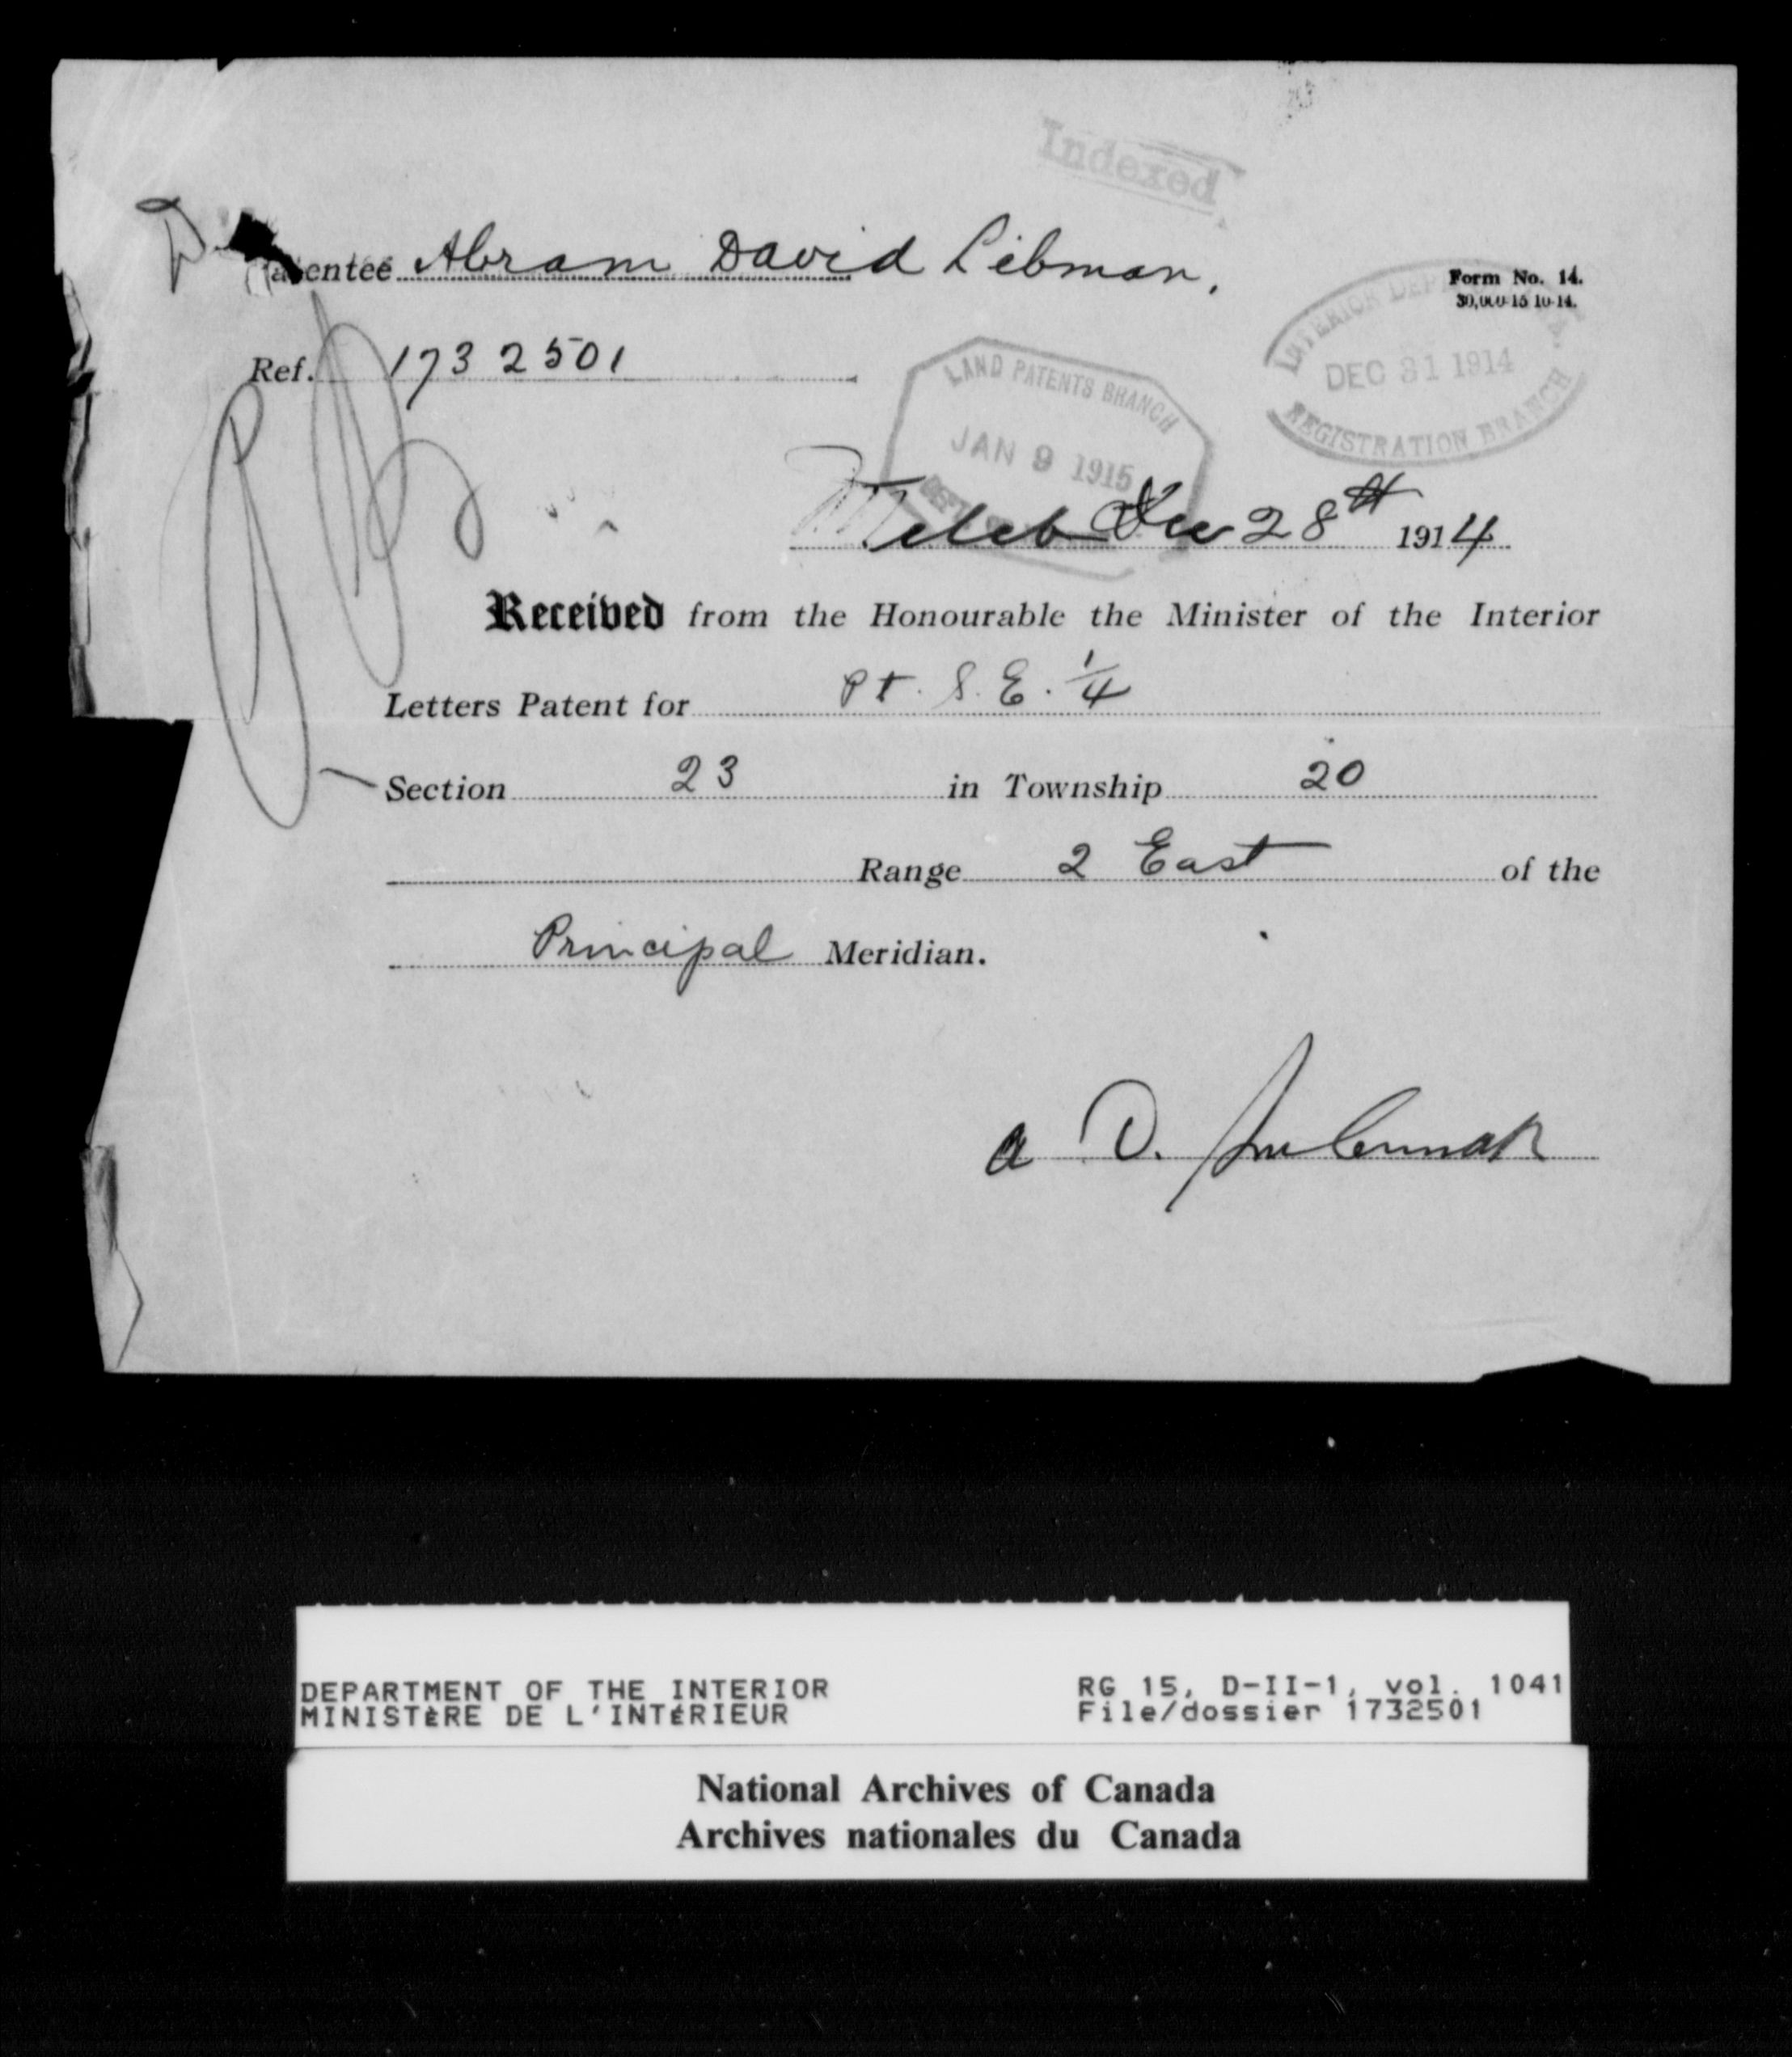 Indexed
Patentee Abram David Libman.
Form No. 14.
30,000-15-10-14.
Ref. 1732501
INTERIOR DEP
DEC 31 1914
REGISTRATION BRANCH
LAND PATENTS BRANCH
JAN 9 1915
DEPT.
Meleb Dec 28th 1914
Received from the Honourable the Minister of the Interior
Letters Patent for Pt. S. E. 1/4
Section 23 in Township 20
Range 2 East of the
Principal Meridian.
A D.
DEPARTMENT OF THE INTERIOR
MINISTÈRE DE L'INTÉRIEUR
RG 15, D-II-1, vol. 1041
File/dossier 1732501
National Archives of Canada
Archives nationales du Canada